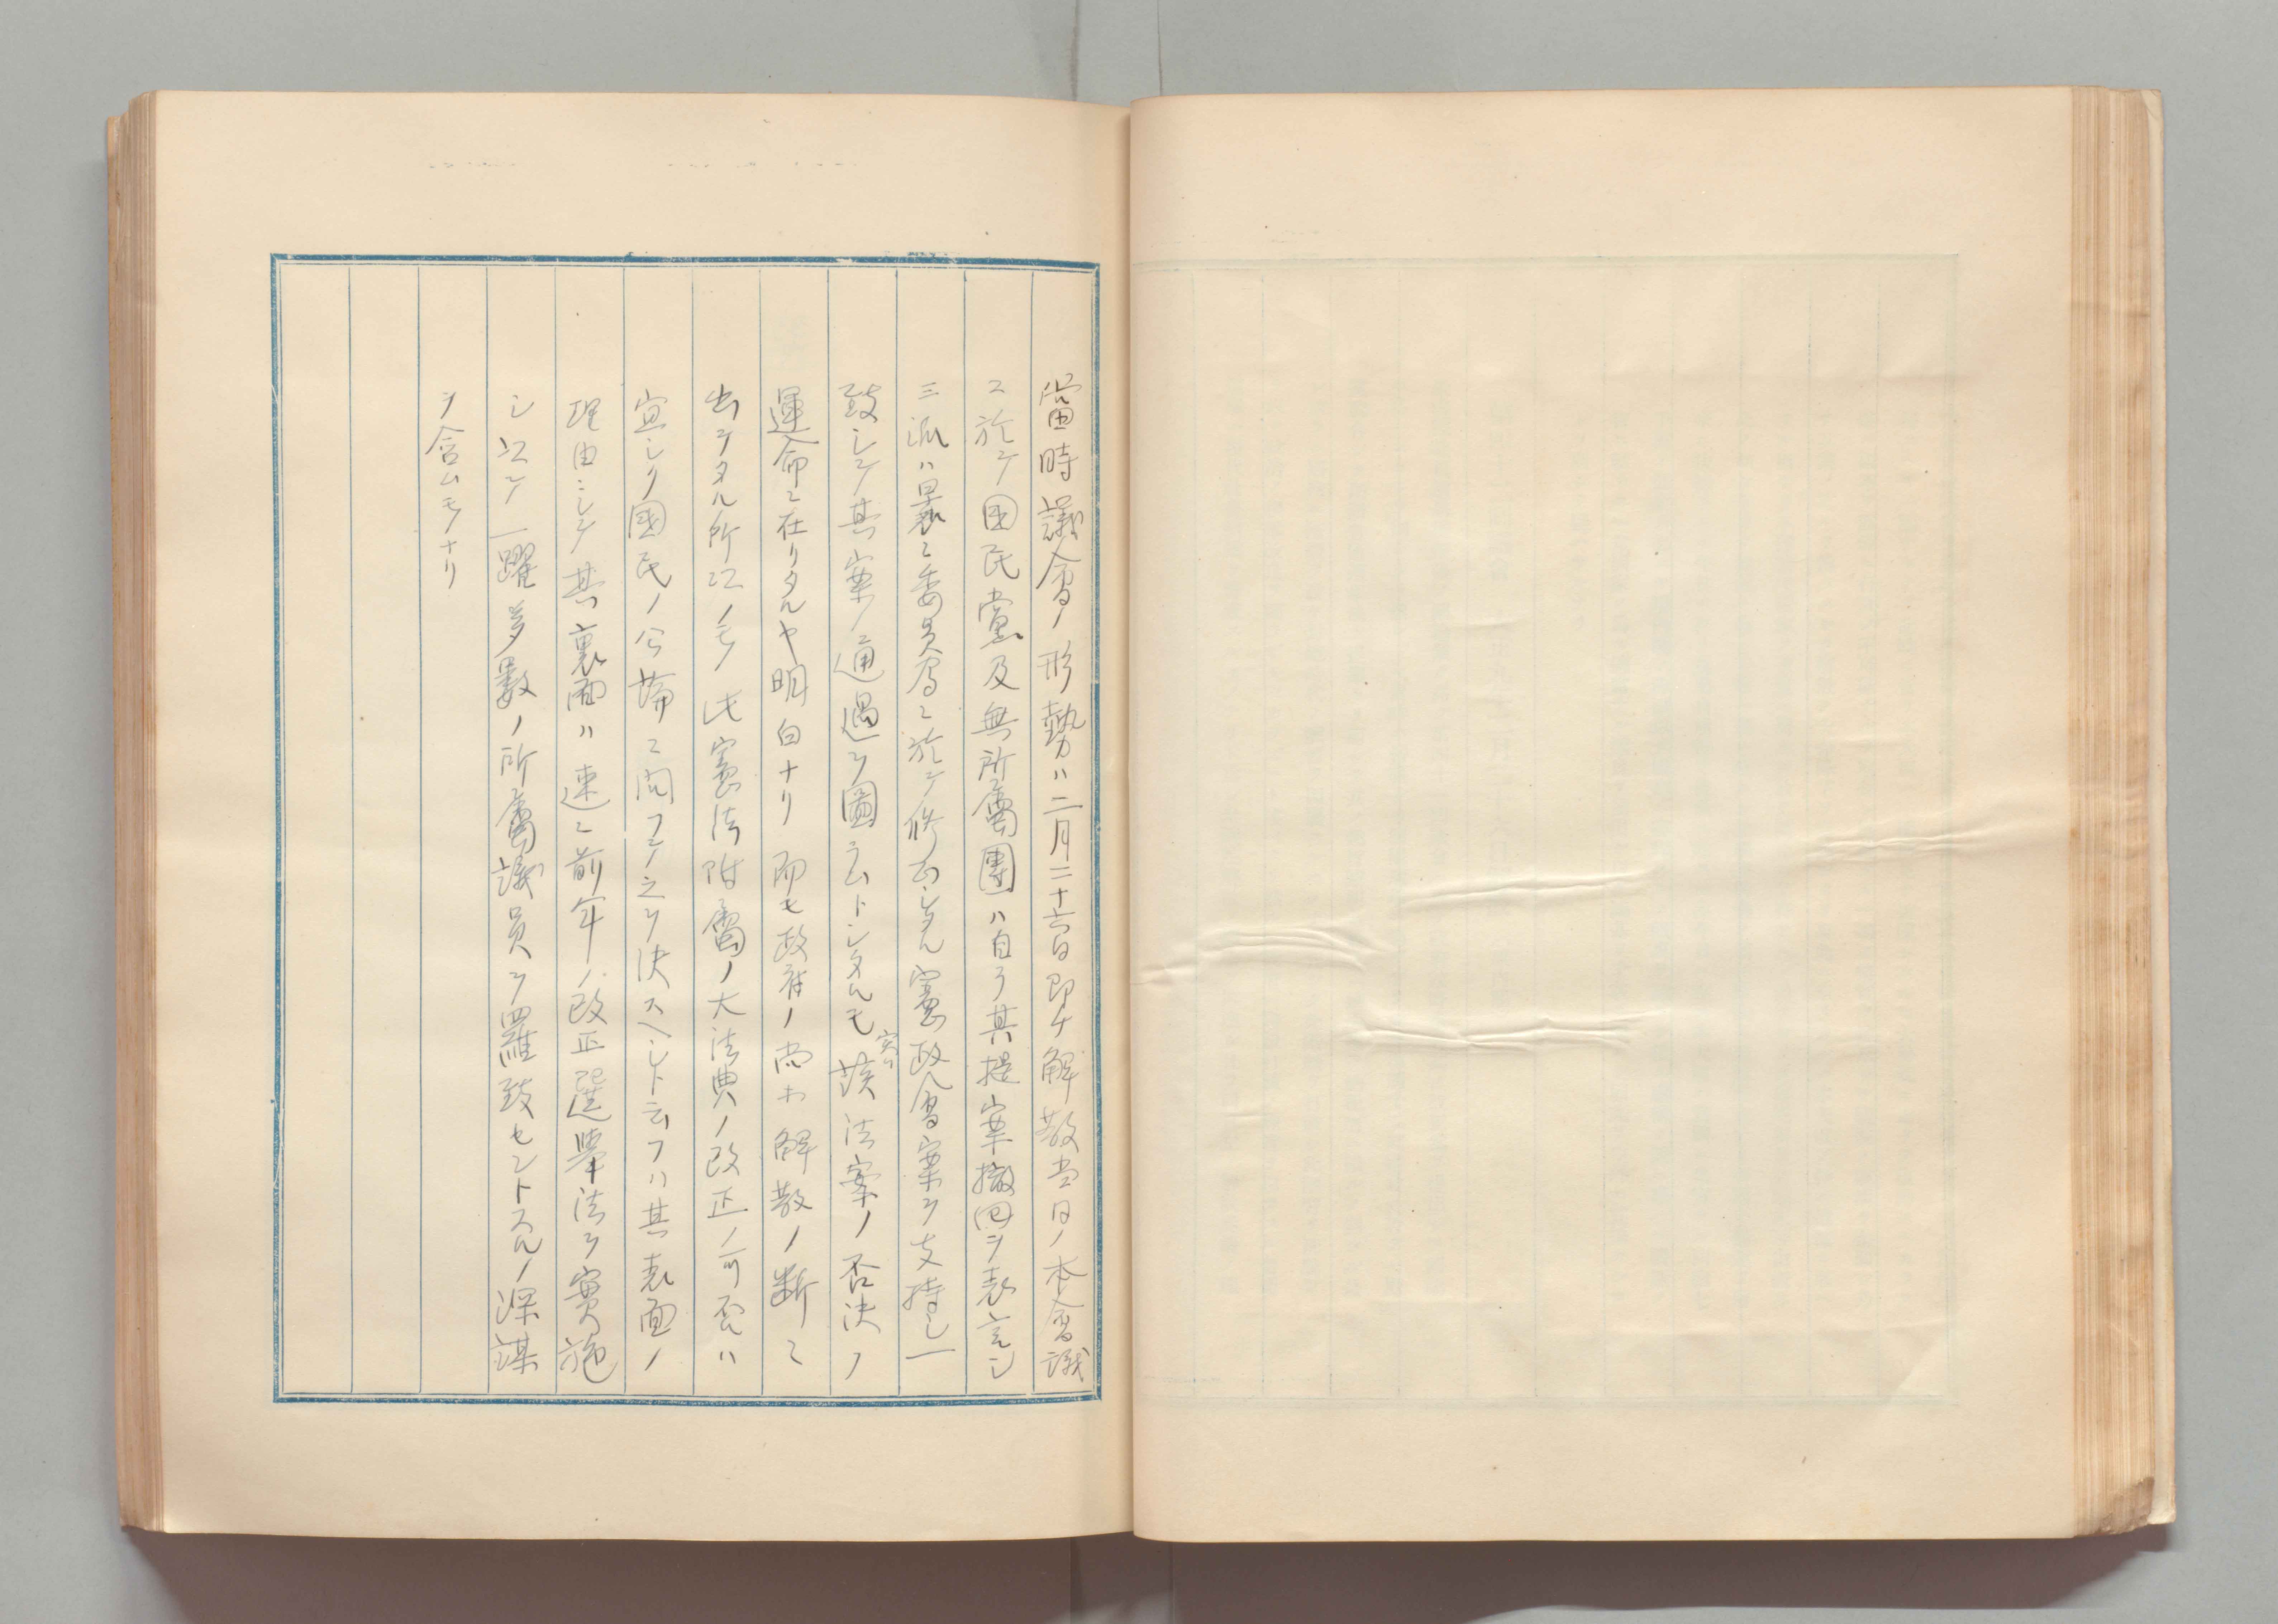 當時議會ノ形勢ハ二月二十六日即チ解散当日ノ本會議
ニ於テ國民黨及無所屬團ハ自ラ其提案撤回ヲ表言シ
三派ハ曩ニ委員會ニ於テ修正シタル憲政會案ヲ支持シ一
致シテ其案ノ通過ヲ圖ラムトシタルモ該法案ノ否決ノ
運命ニ在リタルヤ明白ナリ而モ政府ノ尚ホ解散ノ断ニ
出テタル所以ノモノ此憲法附屬ノ大法典ノ改正ノ可否ハ
宜シク國民ノ公論ニ問フテ之ヲ決スヘシト云フハ其表面ノ
理由ニシテ其裏面ハ速ニ前年ノ改正選擧法ヲ實施
シ以テ一躍多數ノ所屬議員ヲ羅致セントスルノ深謀
ヲ含ムモノナリ